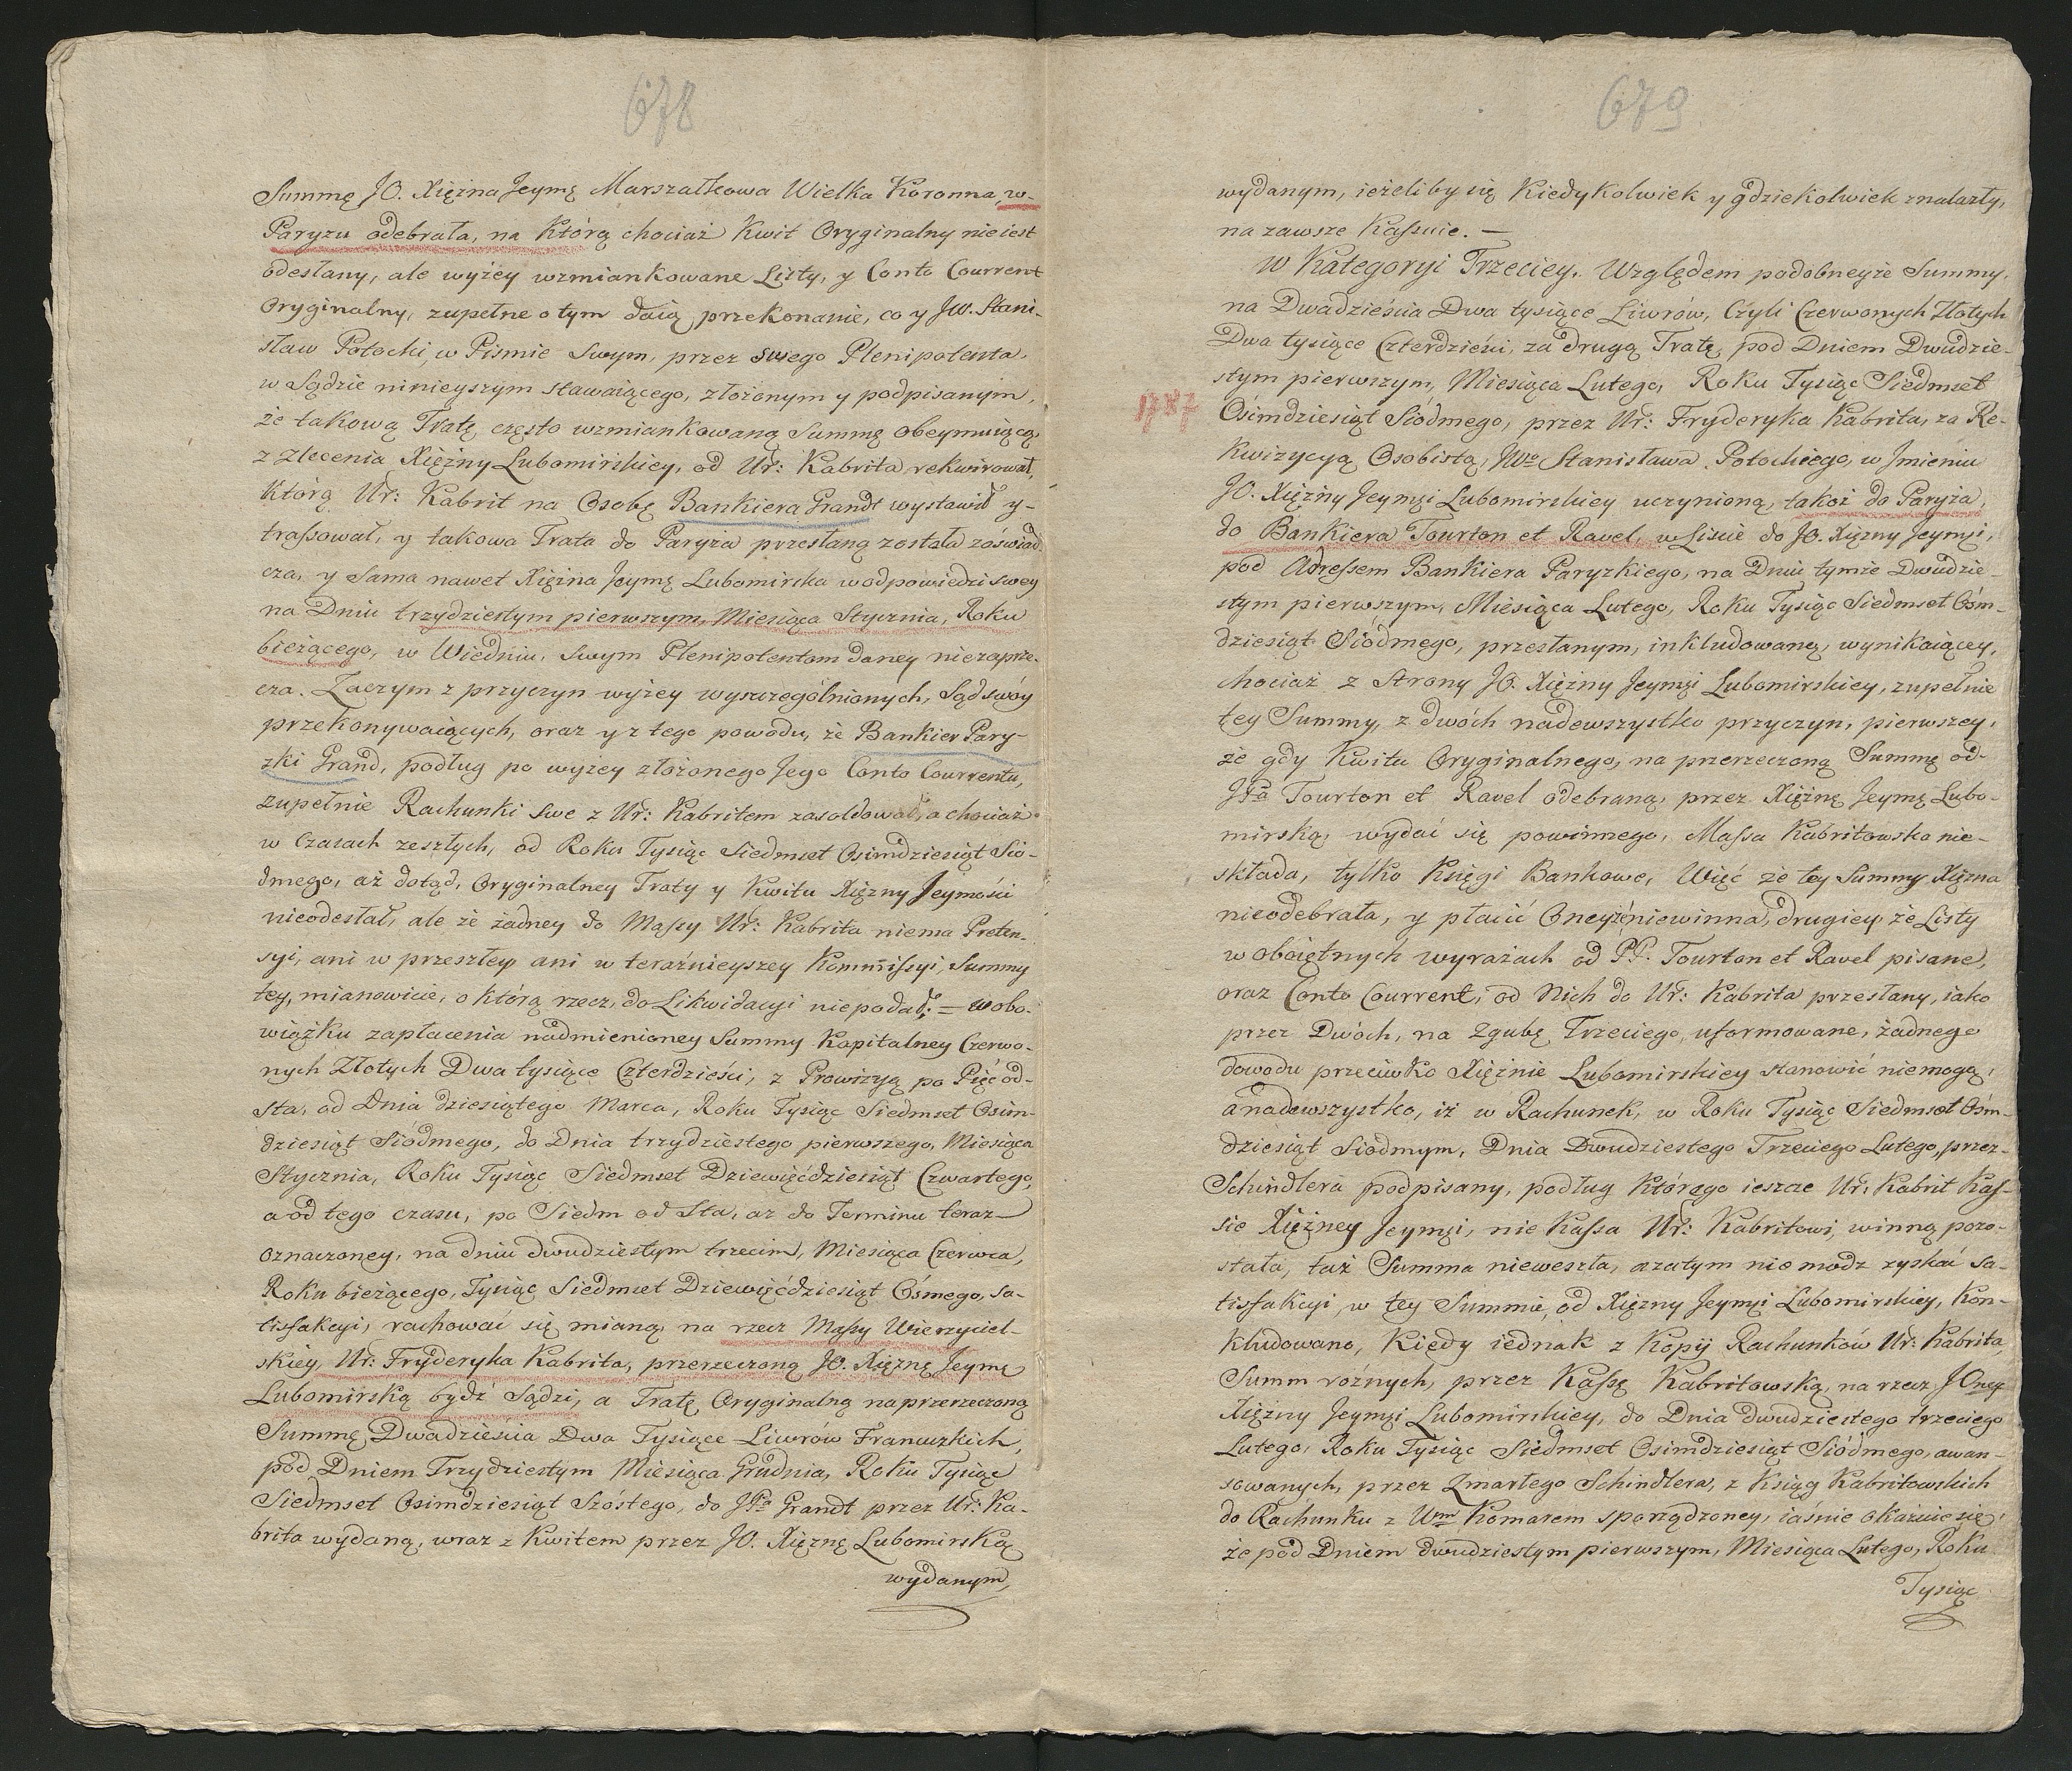 678
Summę JO. Xiężna Jeymę Marszałkowa Wielka Koronna, w-
Paryzu odebrała, na Którą chociaż Kwit Oryginalny nieiest
odesłany, ale wyżey wzmiankowane Listy, y Conto Courrent
Oryginalny, zupełne o tym daią przekonanie, co y JW. Stani-
sław Potocki, w Piśmie Swym, przez swego Plenipotenta,
w Sądzie ninieyszym stawaiącego, złożonym y podpisanym,
że takową Tratę często wzmiankowaną Summę obeymuiącą,
z Zlecenia Xiężny Lubomirskiey, od Ur: Kabrita rekwirował,
Którą Ur: Kabrit na Osobę Bankiera Grandt wystawił y-
trassował, y takowa Trata do Paryża przesłaną została zaświad
cza, y Sama nawet Xiężna Jeymę Lubomirska w odpowiedzi swey
na Dniu trzydziestym pierwszym, Miesiąca Stycznia, Roku
bieżącego, w Wiedniu, swym Plenipotentom daney niezaprze-
cza. Zaczym z przyczyn wyżey wyszczególnionych, Sąd swóy
przekonywaiących, oraz y z tego powodu, że Bankier Pary-
zki Grand, podług po wyżey złożonego Jego Conto Courrentu,
zupełnie Rachunki swe z Ur: Kabritem zasoldował, a chociaż
w Czasach zeszłych, od Roku Tysiąc Siedmset Osimdziesiąt Sió-
dmego, aż dotąd, Oryginalney Traty y Kwitu Xiężny Jeymości
nieodesłał, ale że żadney do Massy Ur: Kabrita niema Preten-
syi, ani w przeszłey ani w teraźnieyszey Kommissyi, Summy
tey, mianowicie, o którą rzecz, do Likwidacyi niepodał; = w obo-
wiązku zapłacenia nadmienioney Summy Kapitalney Czerwo-
nych Złotych Dwa tysiące Czterdzieści, z Prowizyą po Pięć od-
Sta, od Dnia dziesiątego Marca, Roku Tysiąc Siedmset Osim-
dziesiąt Siódmego, do Dnia trzydziestego pierwszego, Miesiąca
Stycznia, Roku Tysiąc Siedmset Dziewięćdziesiąt Czwartego,
a od tego czasu, po Siedm od Sta, aż do Terminu teraz
oznaczoney, na dniu dwudziestym trzecim, Miesiąca Czerwca,
Roku bieżącego, Tysiąc Siedmset Dziewięćdziesiąt Ósmego, Sa-
tisfakcyi, rachować się mianą, na rzecz Massy Wierzyciel-
skiey, Ur: Fryderyka Kabrita, przerzeczoną JO. Xiężnę Jeymę
Lubomirską bydź Sądzi, a Tratę Oryginalną na przerzeczoną
Summę Dwadzieścia Dwa Tysiące Liwrów Francuzkich,
pod Dniem Trzydziestym Miesiąca Grudnia, Roku Tysiąc
Siedmset Osimdziesiąt Szóstego, do JPa Grandt przez Ur: Ka-
brita wydaną, wraz z Kwitem przez JO. Xiężnę Lubomirską
wydanym,
679
wydanym, ieżeliby się Kiedykolwiek y gdziekolwiek znalazły,
na zawsze Kassuie. —
W Kategoryi Trzeciey. Względem podobneyże Summy,
na Dwadzieścia Dwa tysiące Liwrów, Czyli Czerwonych Złotych
Dwa tysiące Czterdzieści, za drugą Tratę, pod Dniem Dwudzie-
stym pierwszym, Miesiąca Lutego, Roku Tysiąc Siedmset
1787
Ósimdziesiąt Siódmego, przez Ur: Fryderyka Kabrita, za Re-
kwizycyą Osobistą, JWo Stanisława Potockiego, w Jmieniu
JO. Xiężny Jeymżi Lubomirskiey uczynioną, takoż do Paryża,
do Bankiera Tourton et Ravel, w Liscie do JO. Xiężny Jeymżi,
pod Adressem Bankiera Paryzkiego, na Dniu tymże Dwudzie-
stym pierwszym, Miesiąca Lutego, Roku Tysiąc Siedmset Ośm-
dziesiąt Siódmego, przesłanym, inkludowaną, wynikaiącey,
chociaż z Strony JO. Xiężny Jeymżi Lubomirskiey, zupełnie
tey Summy, z dwóch nadewszystko przyczyn, pierwszey,
że gdy Kwitu Oryginalnego, na przerzeczoną Summę od-
JPa Tourton et Ravel odebraną, przez Xiężnę Jeymę Lubo-
mirską, wydać się powinnego, Massa Kabritowska nie-
składa, tylko Księgi Bankowe, Więc że tey Summy Xiężna
nieodebrała, y płacić Oneyże niewinna, drugiey, że Listy
w oboiętnych wyrazach od PP. Tourton et Ravel pisane,
oraz Conto Courrent, od Nich do Ur: Kabrita przesłany, iako
przez Dwóch, na Zgubę Trzeciego, uformowane, żadnego
dowodu przeciwko Xiężnie Lubomirskiey stanowić niemogą,
a nadewszystko, iż w Rachunek, w Roku Tysiąc Siedmset Ośm-
dziesiąt Siódmym, Dnia Dwudziestego Trzeciego Lutego, przez-
Schindlera podpisany, podług Którego ieszcze Ur: Kabrit Kas-
sie Xiężney Jeymżi, nie Kassa Ur: Kabritowi, winną pozo-
stała, taż Summa nieweszła, azatym nie módz zyskać Sa-
tisfakcyi, w tey Summie, od Xiężny Jeymżi Lubomirskiey, Kon-
kludowano, Kiedy iednak z Kopii Rachunków Ur: Kabrita,
Summ róźnych, przez Kassę Kabritowską, na rzecz JOney
Xiężny Jeymżi Lubomirskiey, do Dnia dwudziestego trzeciego
Lutego, Roku Tysiąc Siedmset Osimdziesiąt Siódmego, awan-
sowanych, przez Zmarłego Schindlera, z Ksiąg Kabritowskich
do Rachunku z Wm Komarem sporządzoney, iaśnie okazuie się,
że pod Dniem dwudziestym pierwszym, Miesiąca Lutego, Roku
Tysiąc